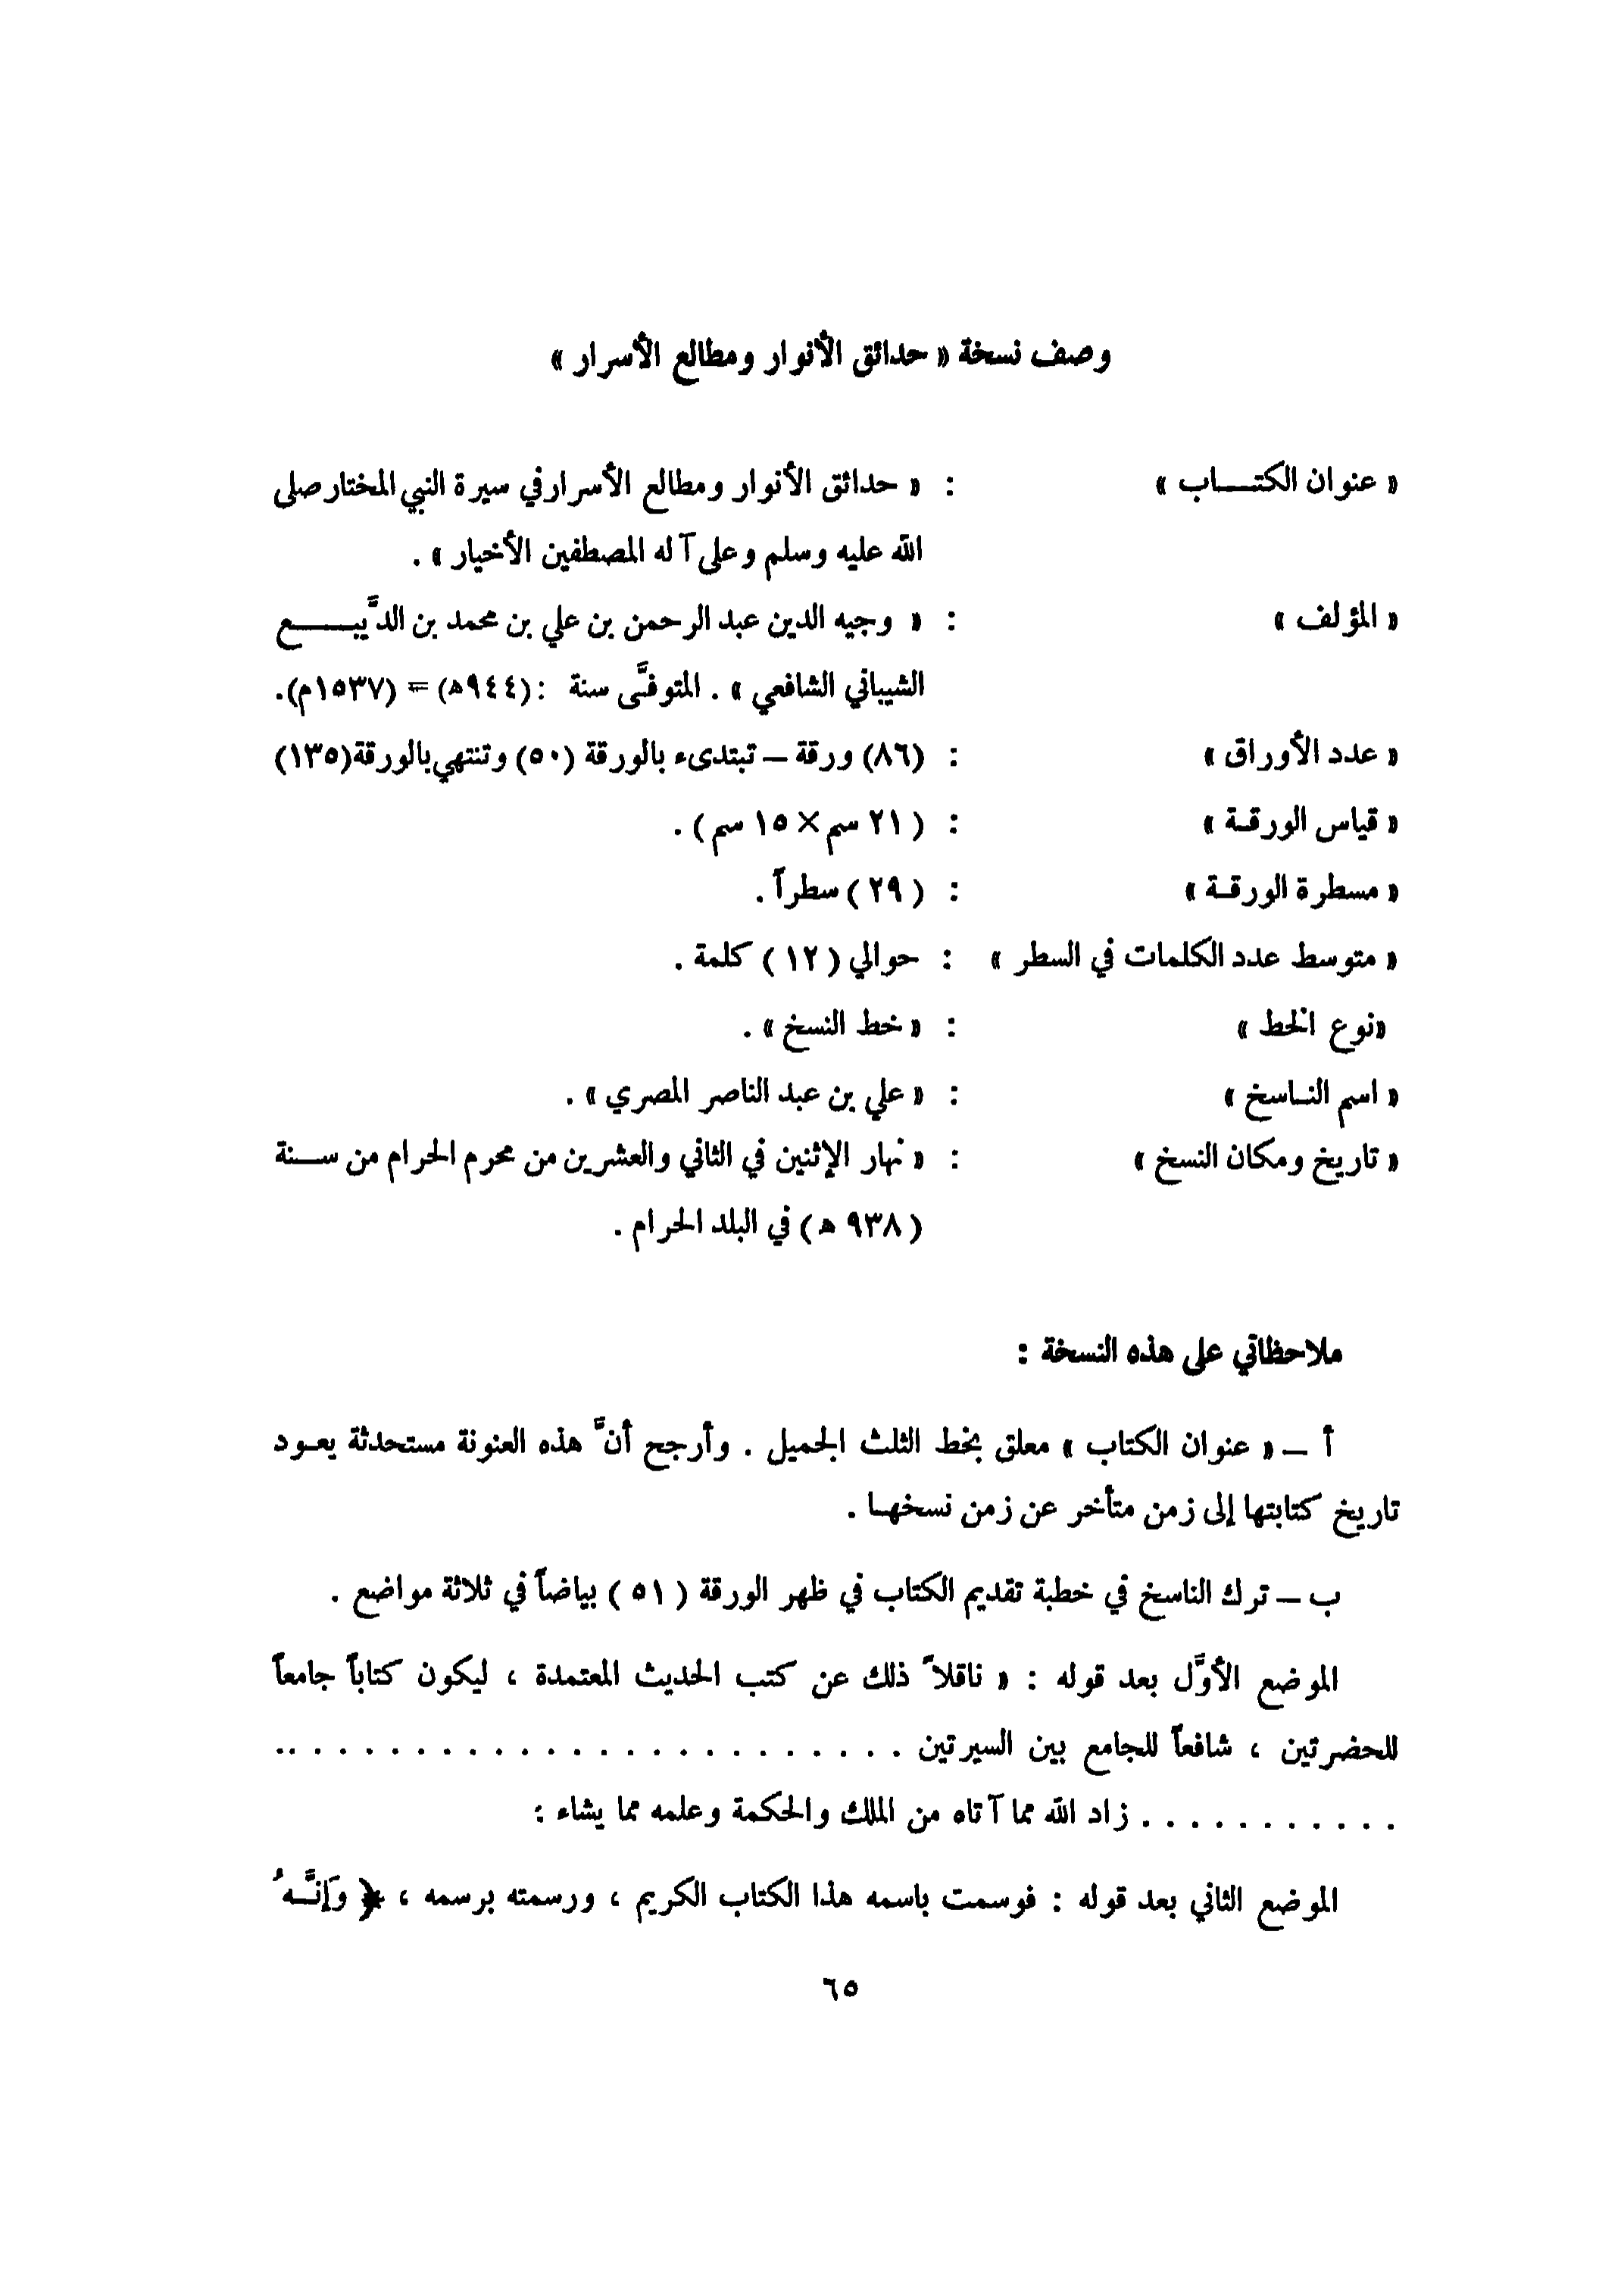 وصف نسخة « حدائق الأنوار ومطالع الأسرار »
« عنوان الكتـــاب » : « حدائق الأنوار ومطالع الأسرار في سيرة النبي المختار صلى
الله عليه وسلم وعلى آله المصطفين الأخيار » .
« المؤلف » : « وجيه الدين عبد الرحمن بن علي بن محمد بن الدَّيبـــــع
الشيباني الشافعي » . المتوفَّى سنة : (٩٤٤ه) = (١٥٣٧م).
« عدد الأوراق » : (٨٦) ورقة – تبتدىء بالورقة (٥٠) وتنتهي بالورقة (١٣٥)
« قياس الورقـة » : ( ٢١ سم × ١٥ سم ) .
« مسطرة الورقـة » : ( ٢٩ ) سطراً .
« متوسط عدد الكلمات في السطر » : حوالي ( ١٢ ) كلمة .
« نوع الخط » : « خط النسخ » .
« اسم النـاسخ » : « علي بن عبد الناصر المصري » .
« تاريخ ومكان النسخ » : « نهار الإثنين في الثاني والعشرين من محرم الحرام من ســنة
( ٩٣٨ ه ) في البلد الحرام .
ملاحظاتي على هذه النسخة :
أ – « عنوان الكتاب » معلق بخط الثلث الجميل . وأرجح أنَّ هذه العنونة مستحدثة يعـود
تاريخ كتابتها إلى زمن متأخر عن زمن نسخهـا .
ب – ترك الناسخ في خطبة تقديم الكتاب في ظهر الورقة ( ٥١ ) بياضاً في ثلاثة مواضع .
الموضع الأوَّل بعد قوله : « ناقلاً ذلك عن كتب الحديث المعتمدة ، ليكون كتاباً جامعاً
للحضرتين ، شافعاً للجامع بين السيرتين . . . . . . . . . . . . . . . . . . . . . . . . ..
. . . . . . . . . . . زاد الله مما آتاه من الملك والحكمة وعلمه مما يشاء :
الموضع الثاني بعد قوله : فوسمت باسمه هذا الكتاب الكريم ، ورسمته برسمه ، ﴿ وَإِنَّـهُ
٦٥